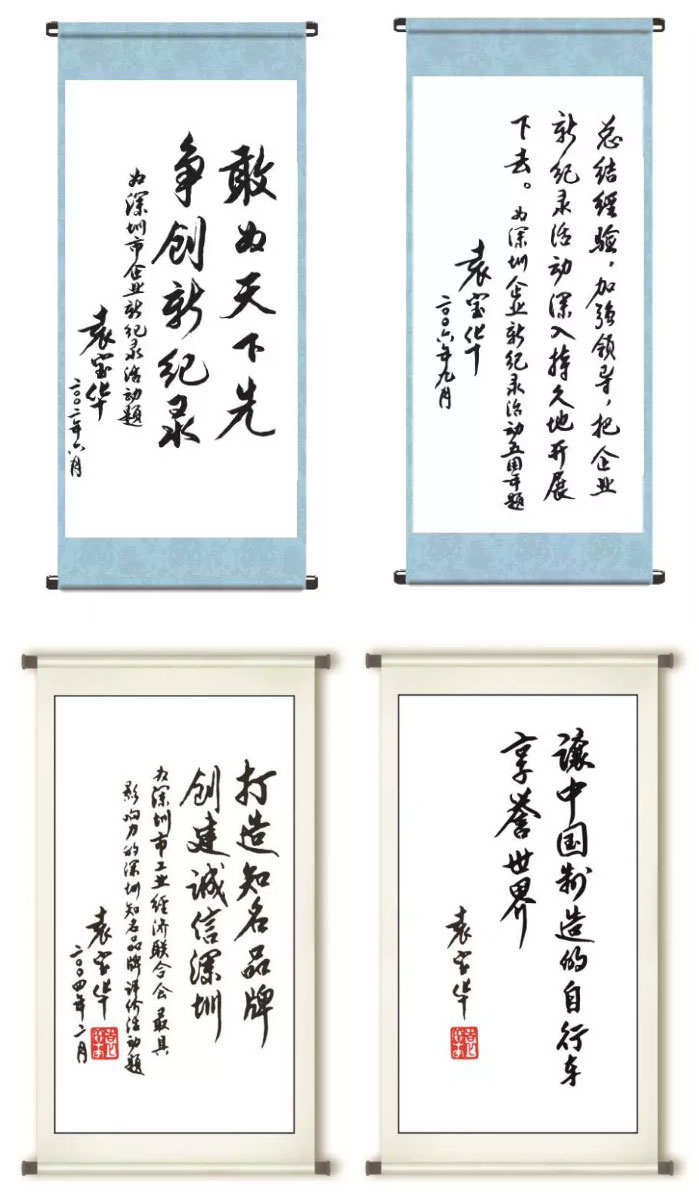 敢为天下先
争创新纪录
为深圳市企业新纪录活动题
袁宝华
二〇〇二年六月
总结经验，加强领导，把企业
新纪录活动深入持久地开展
下去。为深圳企业新纪录活动五周年题
袁宝华
二〇〇六年九月
打造知名品牌
创建诚信深圳
为深圳市工业经济联合会最具
影响力的深圳知名品牌评价活动题
袁宝华
二〇〇四年二月
让中国制造的自行车
享誉世界
袁宝华